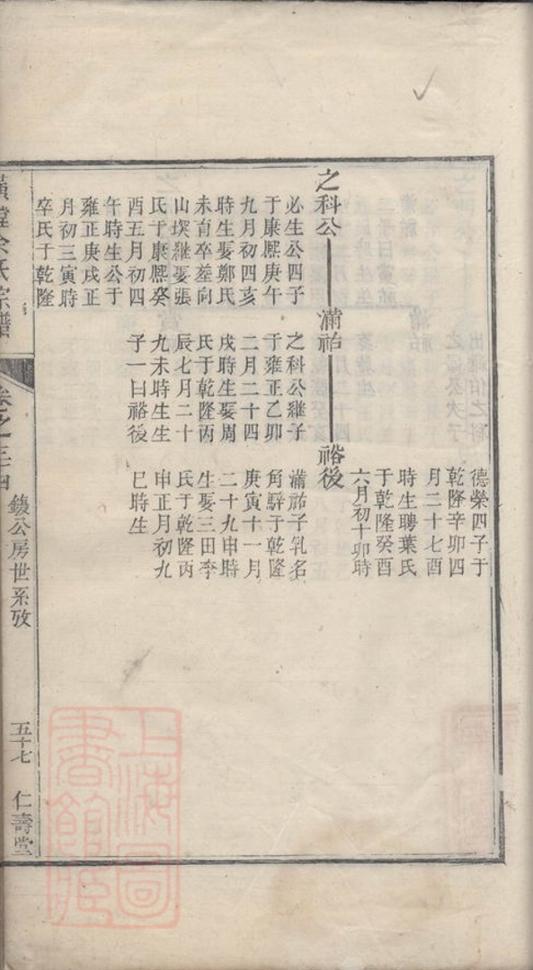 德榮四子于
乾隆辛卯四
月二十七酉
時生聘葉氏
于乾隆癸酉
六月初十卯時
之科公
滿祐
裕後
必生公四子
于康熙庚午
九月初四亥
時生娶鄭氏
未百卒塟向
山塝維娶張
氏于康熙癸
酉五月初四
午時生公于
雍正庚戌正
月初三寅時
卒氏于乾隆
之科公繼子
于雍正乙卯
二月二十四
戌時生娶周
氏于乾隆丙
辰七月二十
九未時生生
子一曰裕後
滿祐子乳名
角驊于乾隆
庚寅十一月
二十九申時
生娶三田李
氏于乾隆丙
申正月初九
巳時生
余氏宗譜
卷之三
公房世系攷
五十七
仁壽堂
上海圖書館藏